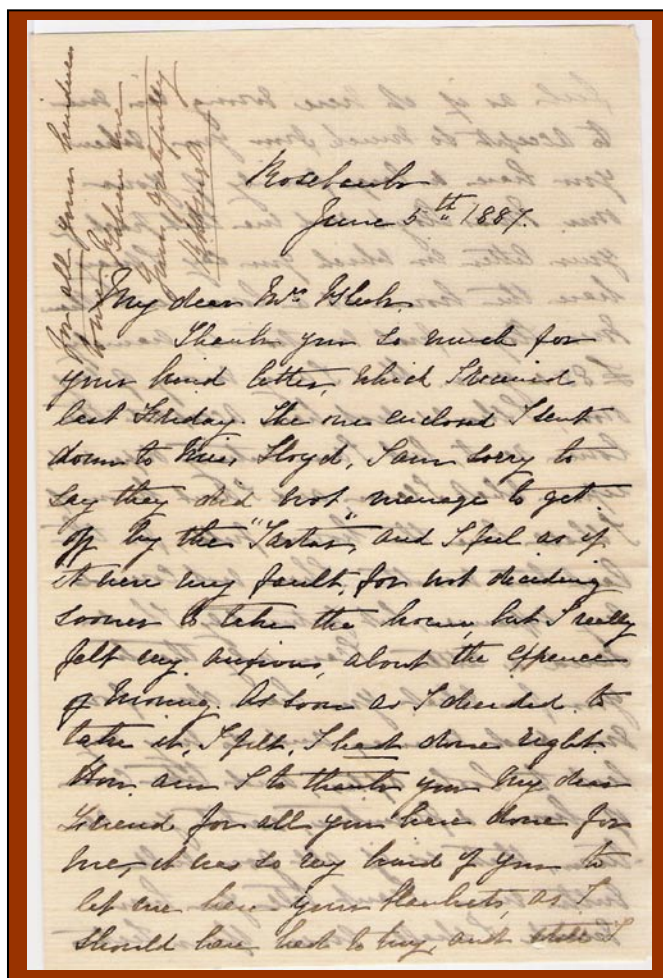 for all your kindness
Believe me
Yours gratefully
June 5th 1887.
My dear Mrs
Thank you so much for
your kind letter, which I received
last Friday. The one enclosed I sent
down to Miss Lloyd, I am sorry to
say they did not manage to get
off by the "Tartar", and I feel as if
it were my fault, for not deciding
sooner to take the house, but I really
felt very anxious, about the expence
of moving. As soon as I decided to
take it, I felt, I had done right.
How am I to thank you my dear
Friend for all you have done for
me, it was so very kind of you to
let me have your blankets, as I
should have had to buy, and still I